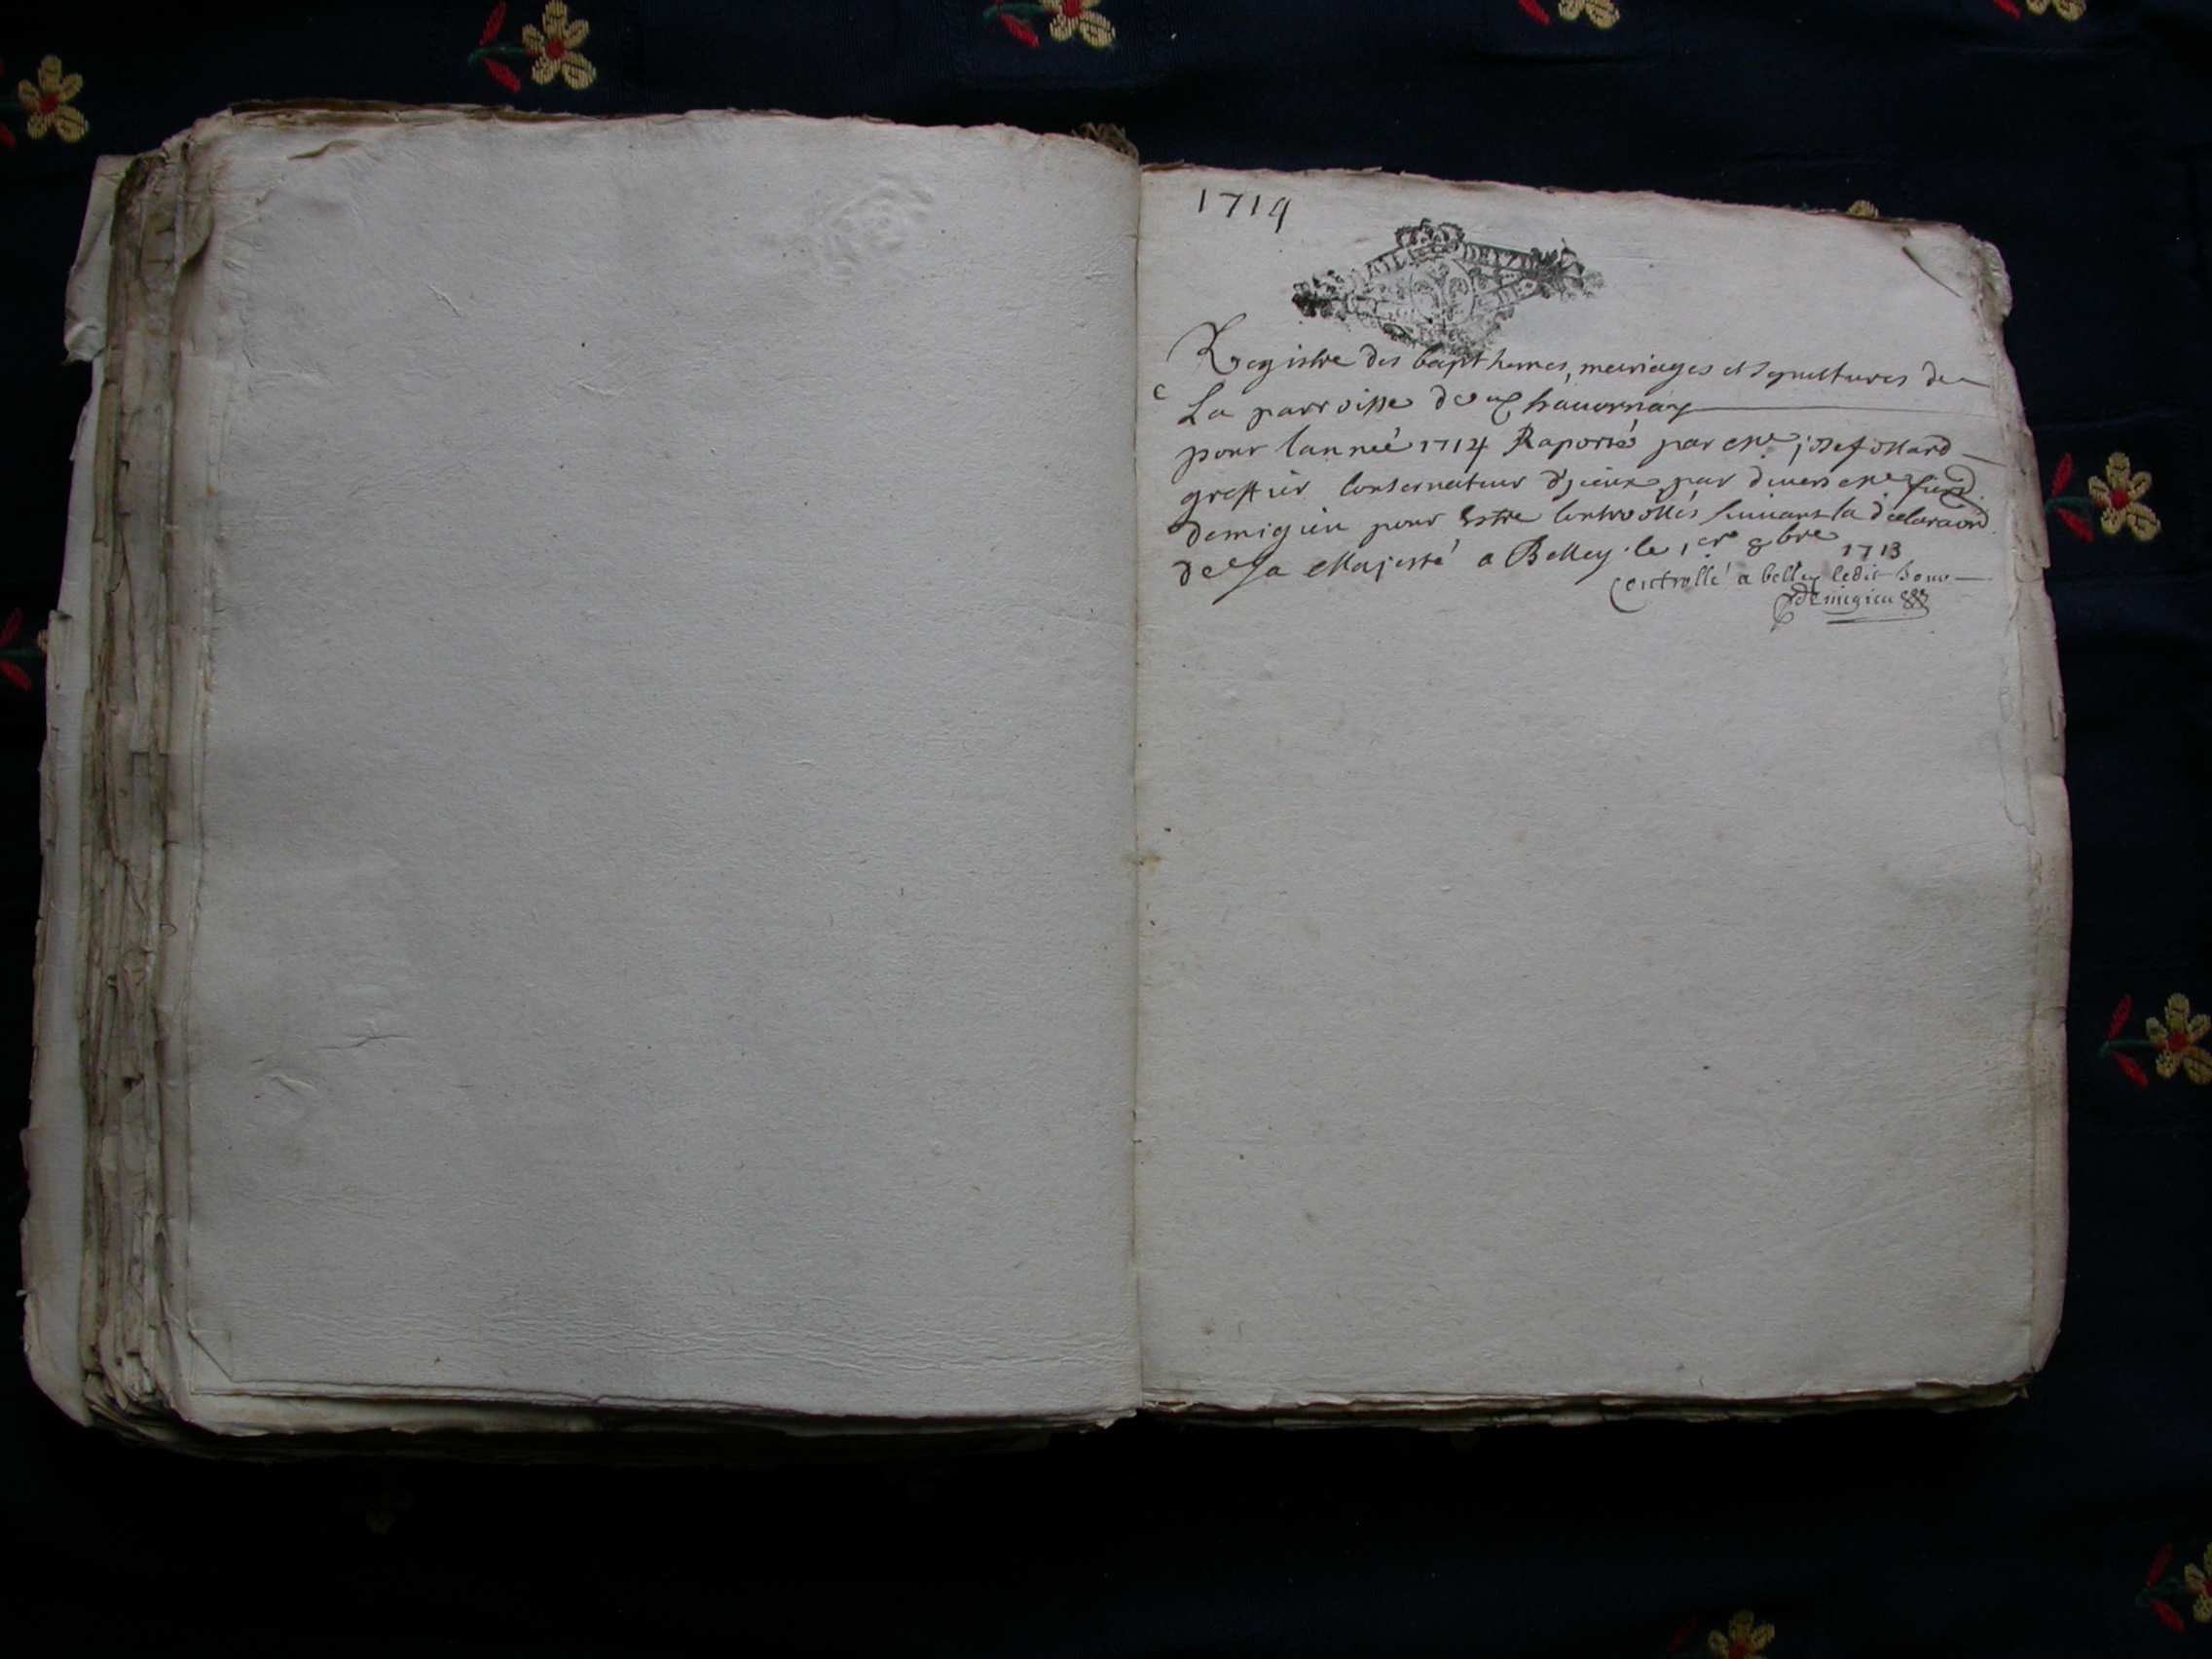 1714
Registre des bapthemes, mariages et sepultures de
La parroisse de Chavornay
pour l'année 1714 Raporté par Me josef
greffier Conservateur par
demigieu pour Estre Controollés suivant la declaraon
de Sa Majesté a Belley le 1er 8bre 1713
Controllé a belley ledit Jour
demigieu